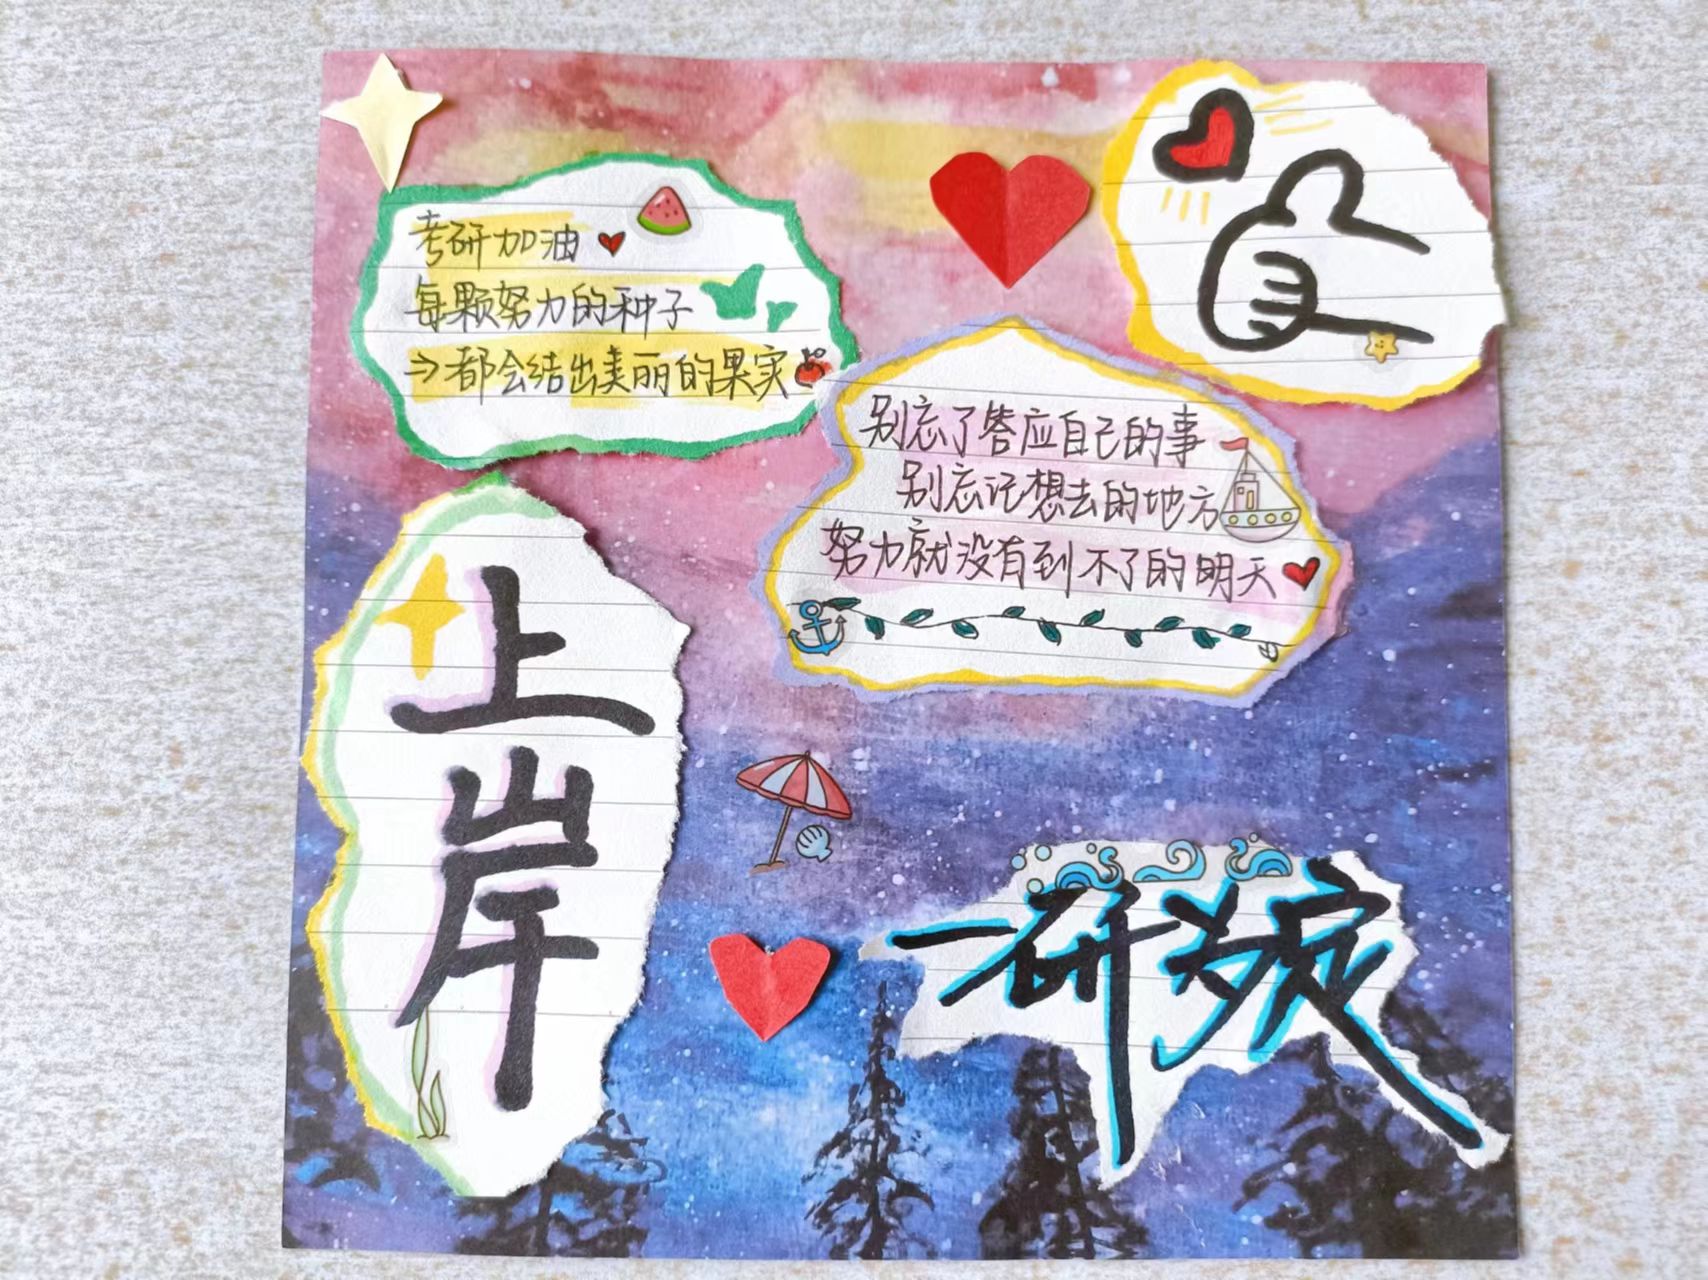 考研加油
每颗努力的种子
⇒都会结出美丽的果实
别忘了答应自己的事
别忘记想去的地方
努力就没有到不了的明天
上
岸
一研为定